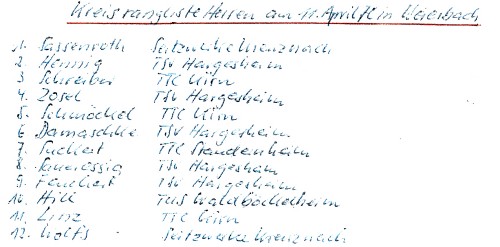 Kreisrangliste Herren am 11. April 71 in Weierbach
1. Sassenroth Seitzwerke Kreuznach
2 Hennig TSV Hargesheim
3 Schreiber TTC Kirn
4. Zosel TSV Hargesheim
5. Schmöckel TTC Kirn
6 Damaschke TSV Hargesheim
7. Suckert TTC Staudenheim
8. Sauerässig TSV Hargesheim
9. Feuchert TSV Hargesheim
10. Hill TuS Waldböckelheim
11. Linz TTC Kirn
12. Wolfs Seitzwerke Kreuznach